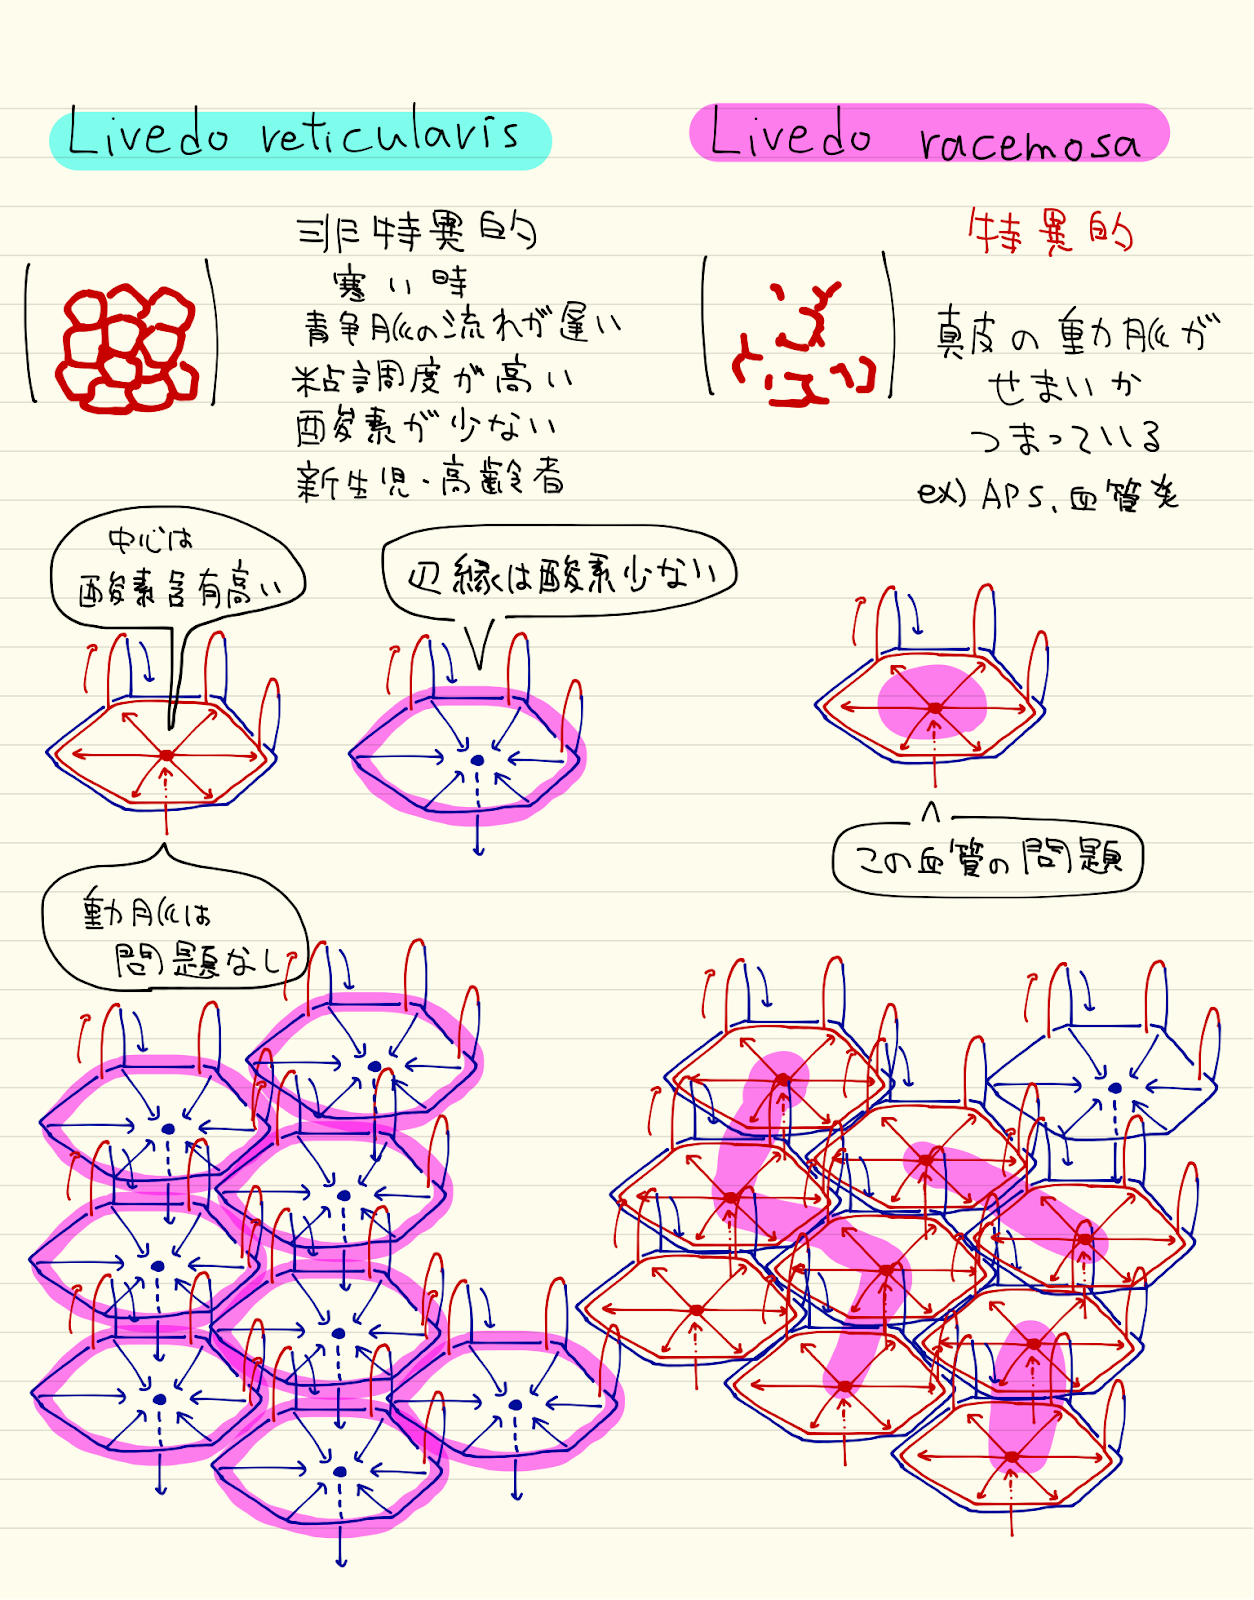 Livedo reticularis
非特異的
寒い時
静脈の流れが遅い
粘調度が高い
酸素が少ない
新生児・高齢者
中心は
酸素含有高い
辺縁は酸素少ない
動脈は
問題なし
Livedo racemosa
特異的
真皮の動脈が
せまいか
つまっている
ex) APS、血管炎
この血管の問題